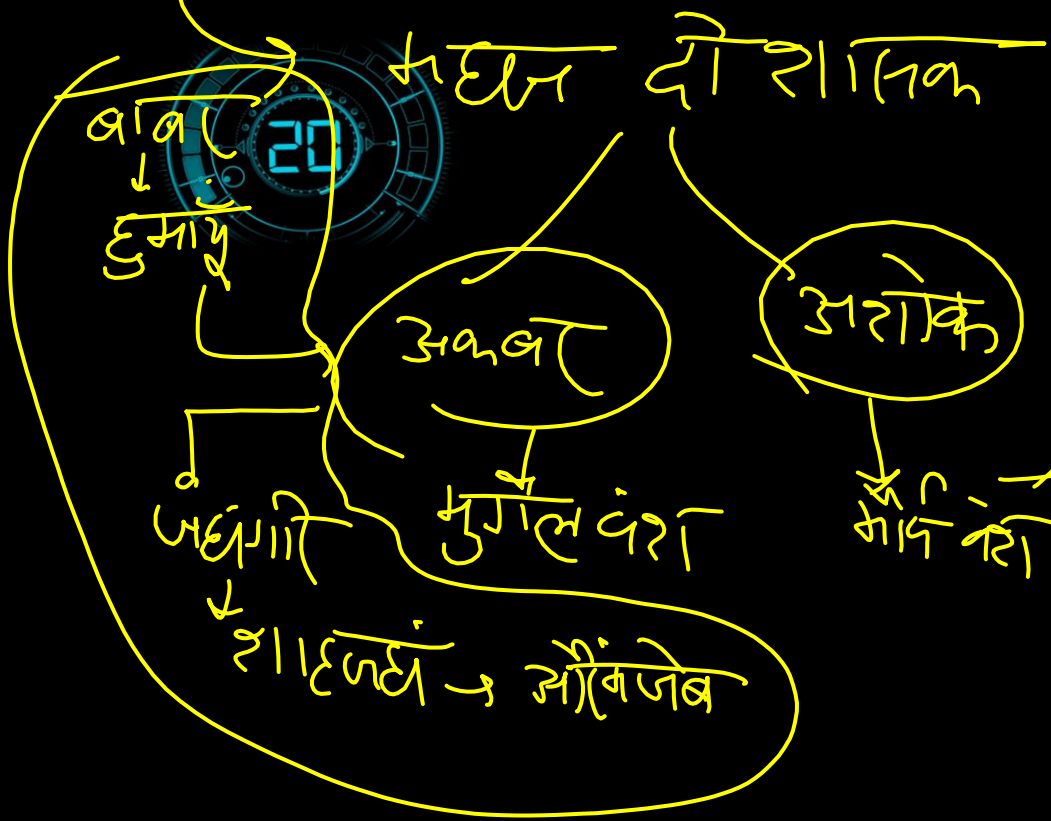 महान दो शासक
बाबर
20
हुमायूं
अकबर
अशोक
जहांगीर
मुगल वंश
मौर्य वंश
शाहजहां → औरंगजेब